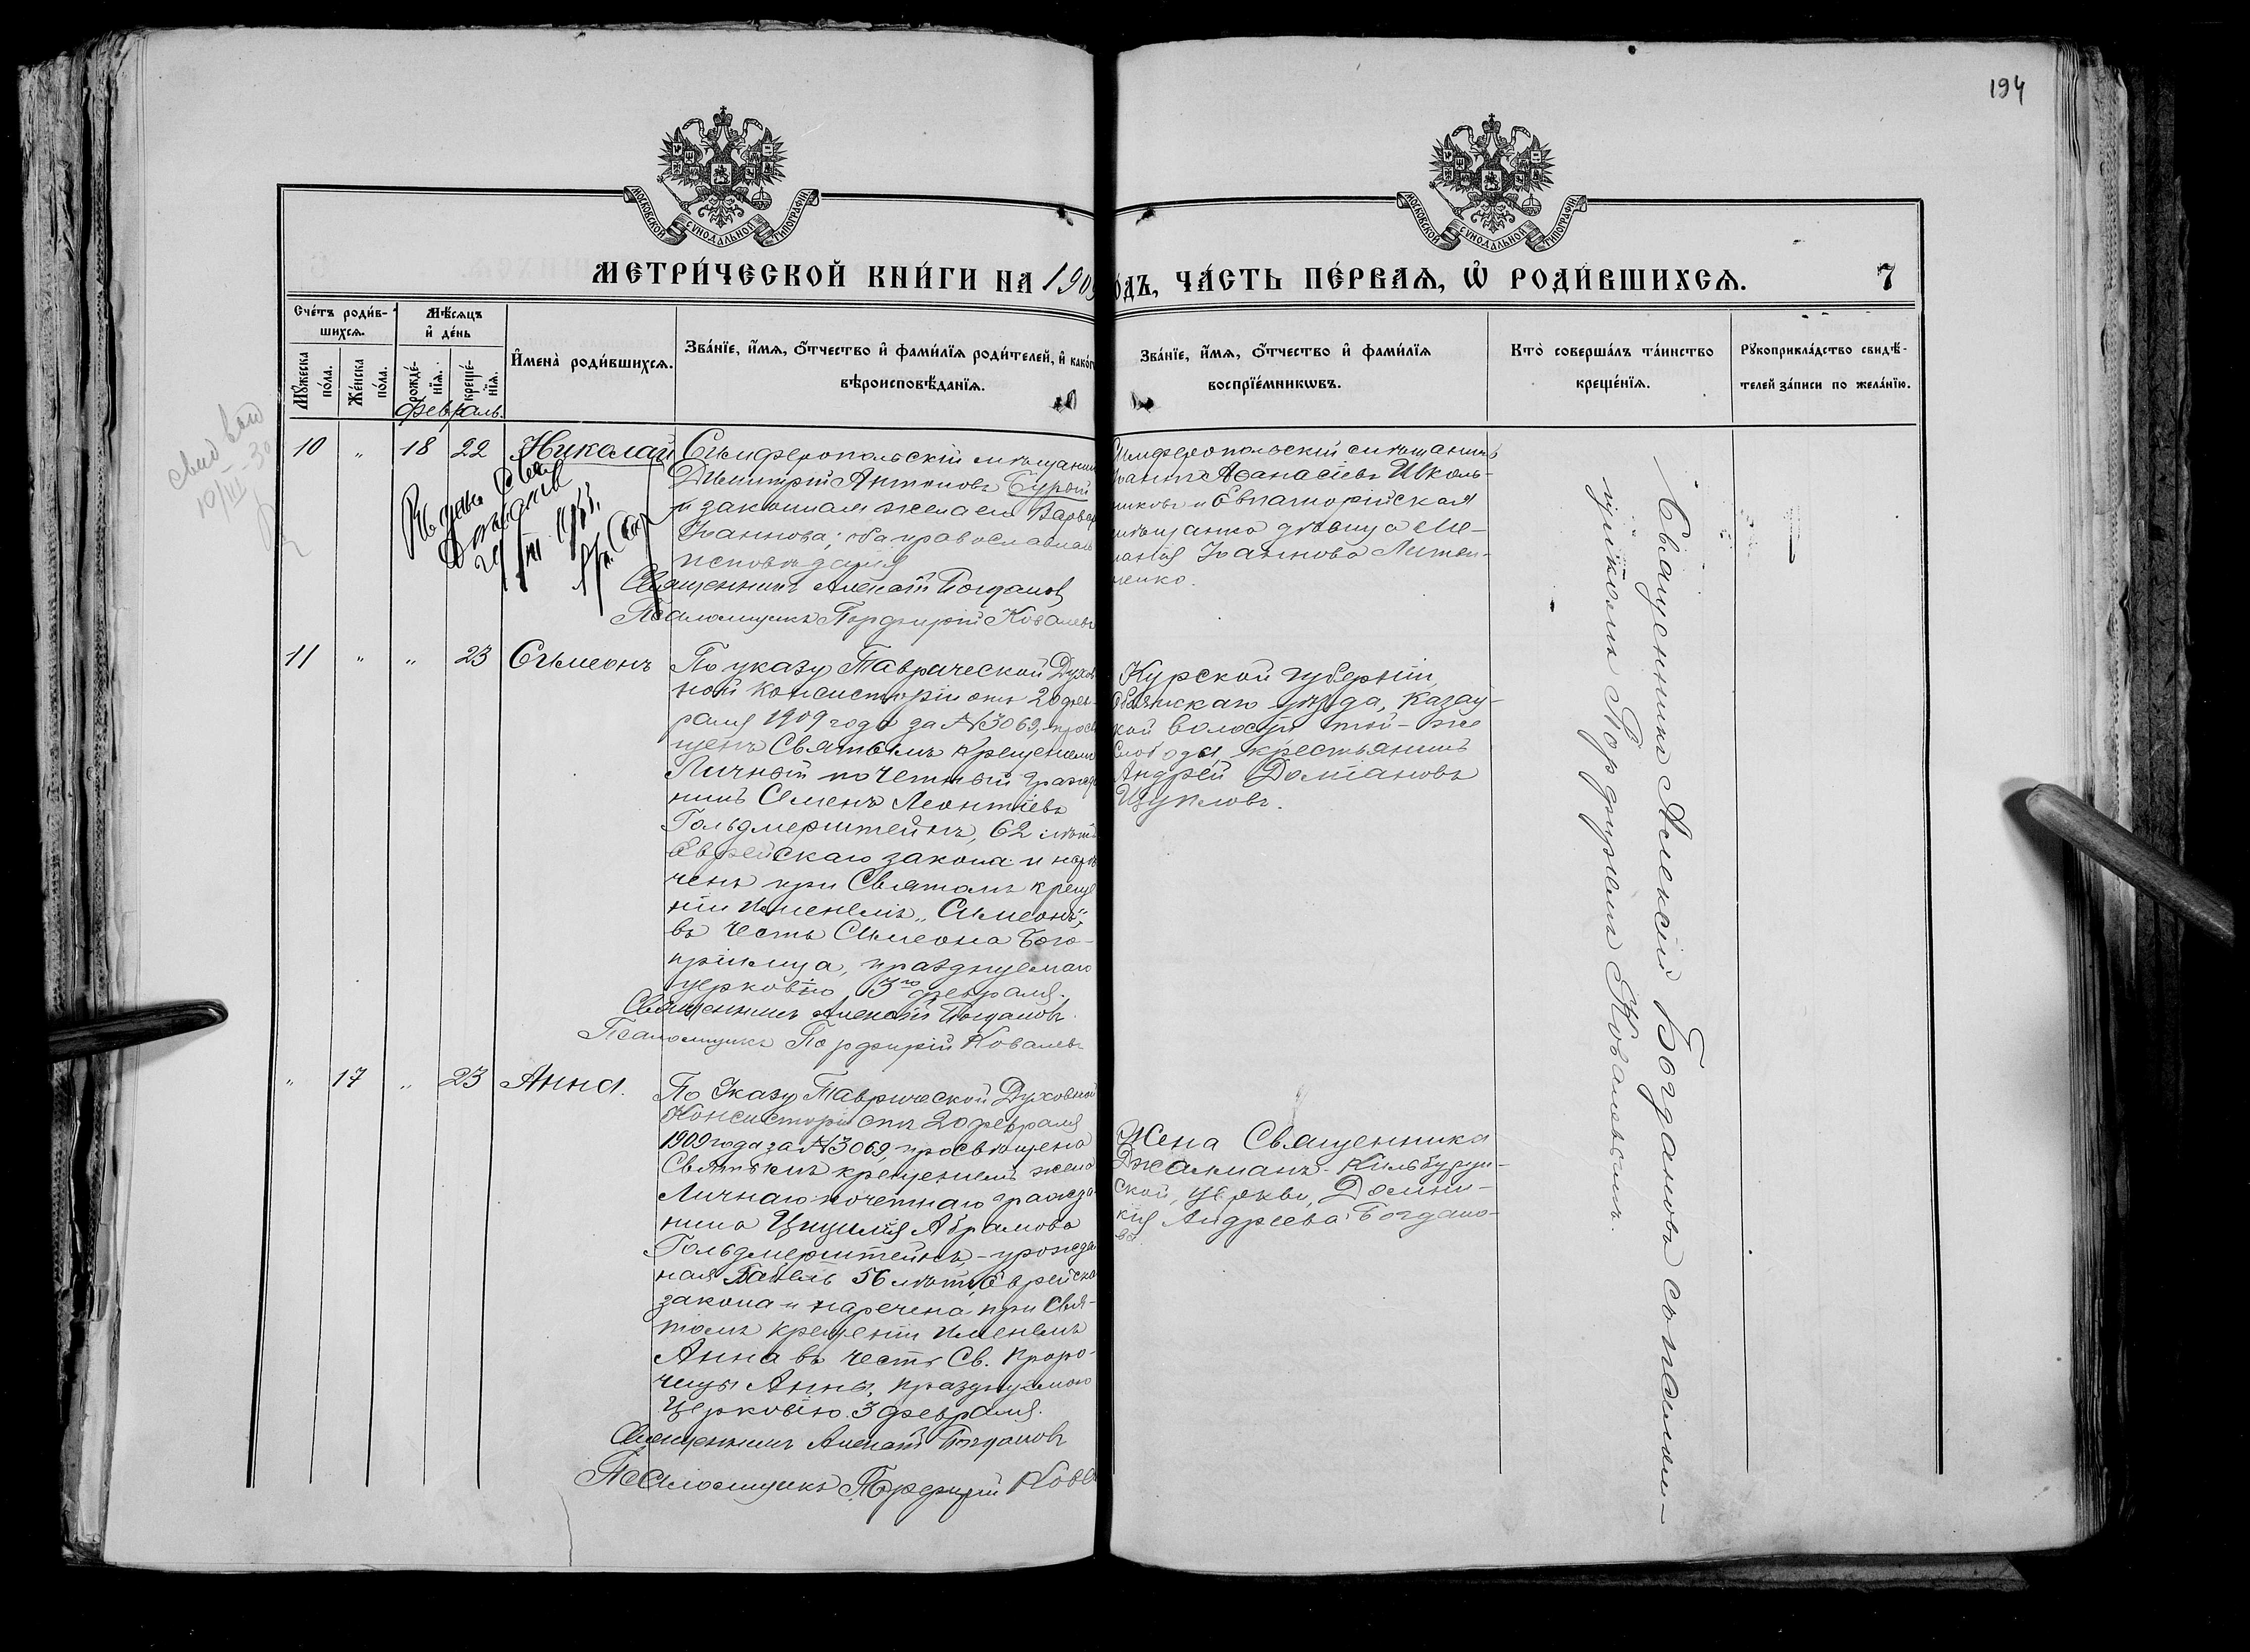 194
МОСКОВСКОЙ СѴНОДАЛЬНОЙ ТИПОГРАФІИ.
МОСКОВСКОЙ СѴНОДАЛЬНОЙ ТИПОГРАФІИ.
МЕТРИ́ЧЕСКОЙ КНИ́ГИ НА 1909
ОДЪ, ЧА́СТЬ ПЕ́РВАѦ, Ѡ҆ РОДИ́ВШИХСѦ.
7
Сче́тъ роди́в-
шихсѧ.
Мꙋ́жеска
по́ла.
Же́нска
по́ла.
Мѣ́сѧцъ
и҆ де́нь
рожде́-
нїѧ.
креще́-
нїѧ.
И҆мена̀ роди́вшихсѧ.
Зва́нїе, и҆́мѧ, ѻ҆́тчество и҆ фами́лїѧ роди́телей, и҆ како́г
вѣроисповѣ́данїѧ.
Зва́нїе, и҆́мѧ, ѻ҆́тчество и҆ фами́лїѧ
воспрїе́мникѡвъ.
Кто̀ соверша́лъ та́инство
креще́нїѧ.
Рꙋкоприкла́дство свидѣ́-
телей за́писи по жела́нїю.
февраль.
10 " 18 22 Николай
Симферопольскій мѣщанин
Димитрій Антоновъ Бурый
и законная жена его Варвар
Іоаннова; оба православнаго
исповѣданія
Священникъ Алексій Богдановъ
Псаломщикъ Порфирій Ковалевъ
Симферопольскій мѣщанинъ
Іоаннъ Аѳанасіевъ Школь-
никовъ и Евпаторійская
мѣщанка дѣвица Ме-
ланія Іоаннова Литви-
ненко.
11 " " 23 Сѵмеонъ
По указу Таврической Духов
ной Консисторіи отъ 20 фев-
раля 1909 года за №3069, просвѣ
щенъ Святымъ крещеніемъ
Личный почетный гражда
нинъ Семенъ Леонтіевъ
Гольдмерштейнъ, 62 лѣтъ
Еврейскаго закона и наре
ченъ при Святомъ креще
ніи именемъ „Сѵмеонъ",
въ честь Сѵмеона Бого-
пріимца, празднуемаго
церковію 3го февраля.
Священникъ Алексій Богдановъ.
Псаломщикъ Порфирій Ковалевъ
Курской губерніи,
Обоянскаго уѣзда, Казац-
кой волости той-же
слободы крестьянинъ
Андрей Домтановъ
Цукловъ.
" 17 " 23 Анна.
По Указу Таврической Духовной
Консисторіи отъ 20 февраля
1909 года за №3069, просвѣщена
Святымъ крещеніемъ жена
Личнаго почетнаго гражда-
нина Цицилія Абрамова
Гольдмерштейнъ, - урожден
ная 56 лѣтъ, Еврейска
закона и наречена при Свя-
томъ крещеніи именемъ
Анна въ честь Св. Проро-
чицы Анны, празднуемою
Церковію 3 февраля.
Священникъ Алексій Богдановъ
Псаломщикъ Порфирій Кова
Жена Священника
Джаманъ-Кильбурун-
ской, церкви, Домни-
кія Андреева Богдано-
ва.
Священникъ Алексій Богдановъ съ псалом-
щикомъ Порфиріемъ Ковалевымъ.